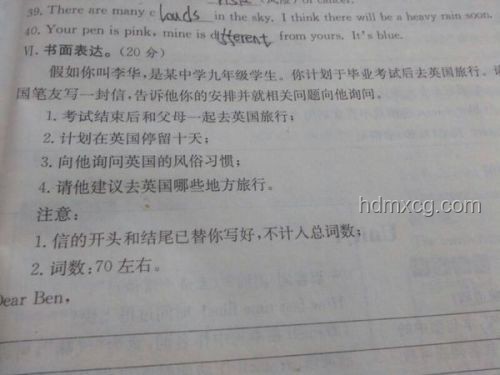 (风险) of cancer.
39. There are many clouds in the sky. I think there will be a heavy rain soon.
40. Your pen is pink, mine is different from yours. It's blue.
Ⅵ. 书面表达。(20 分)
假如你叫李华,是某中学九年级学生。你计划于毕业考试后去英国旅行。请
国笔友写一封信,告诉他你的安排并就相关问题向他询问。
1. 考试结束后和父母一起去英国旅行;
2. 计划在英国停留十天;
3. 向他询问英国的风俗习惯;
4. 请他建议去英国哪些地方旅行。
hdmxcg.com
注意:
1. 信的开头和结尾已替你写好,不计入总词数;
2. 词数:70 左右。
Dear Ben,